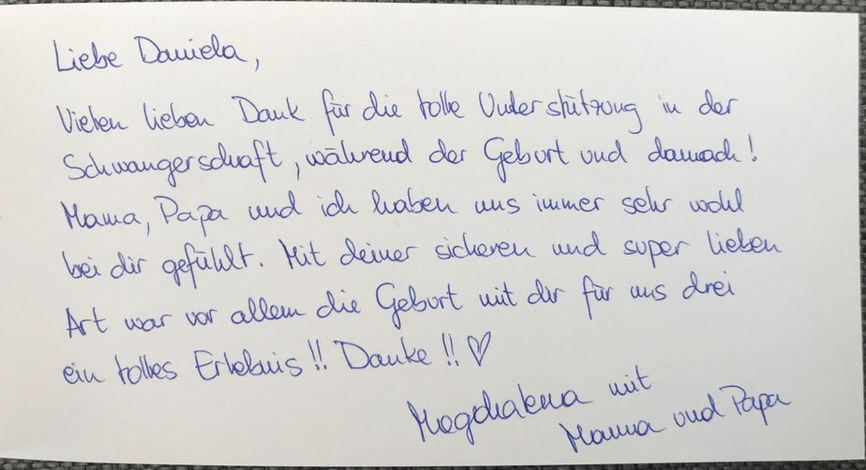 Liebe Daniela,
Vielen lieben Dank für die tolle Unterstützung in der
Schwangerschaft, während der Geburt und danach!
Mama, Papa und ich haben uns immer sehr wohl
bei dir gefühlt. Mit deiner sicheren und super lieben
Art war vor allem die Geburt mit dir für uns drei
ein tolles Erlebnis!! Danke!! ♡
Magdalena mit
Mama und Papa